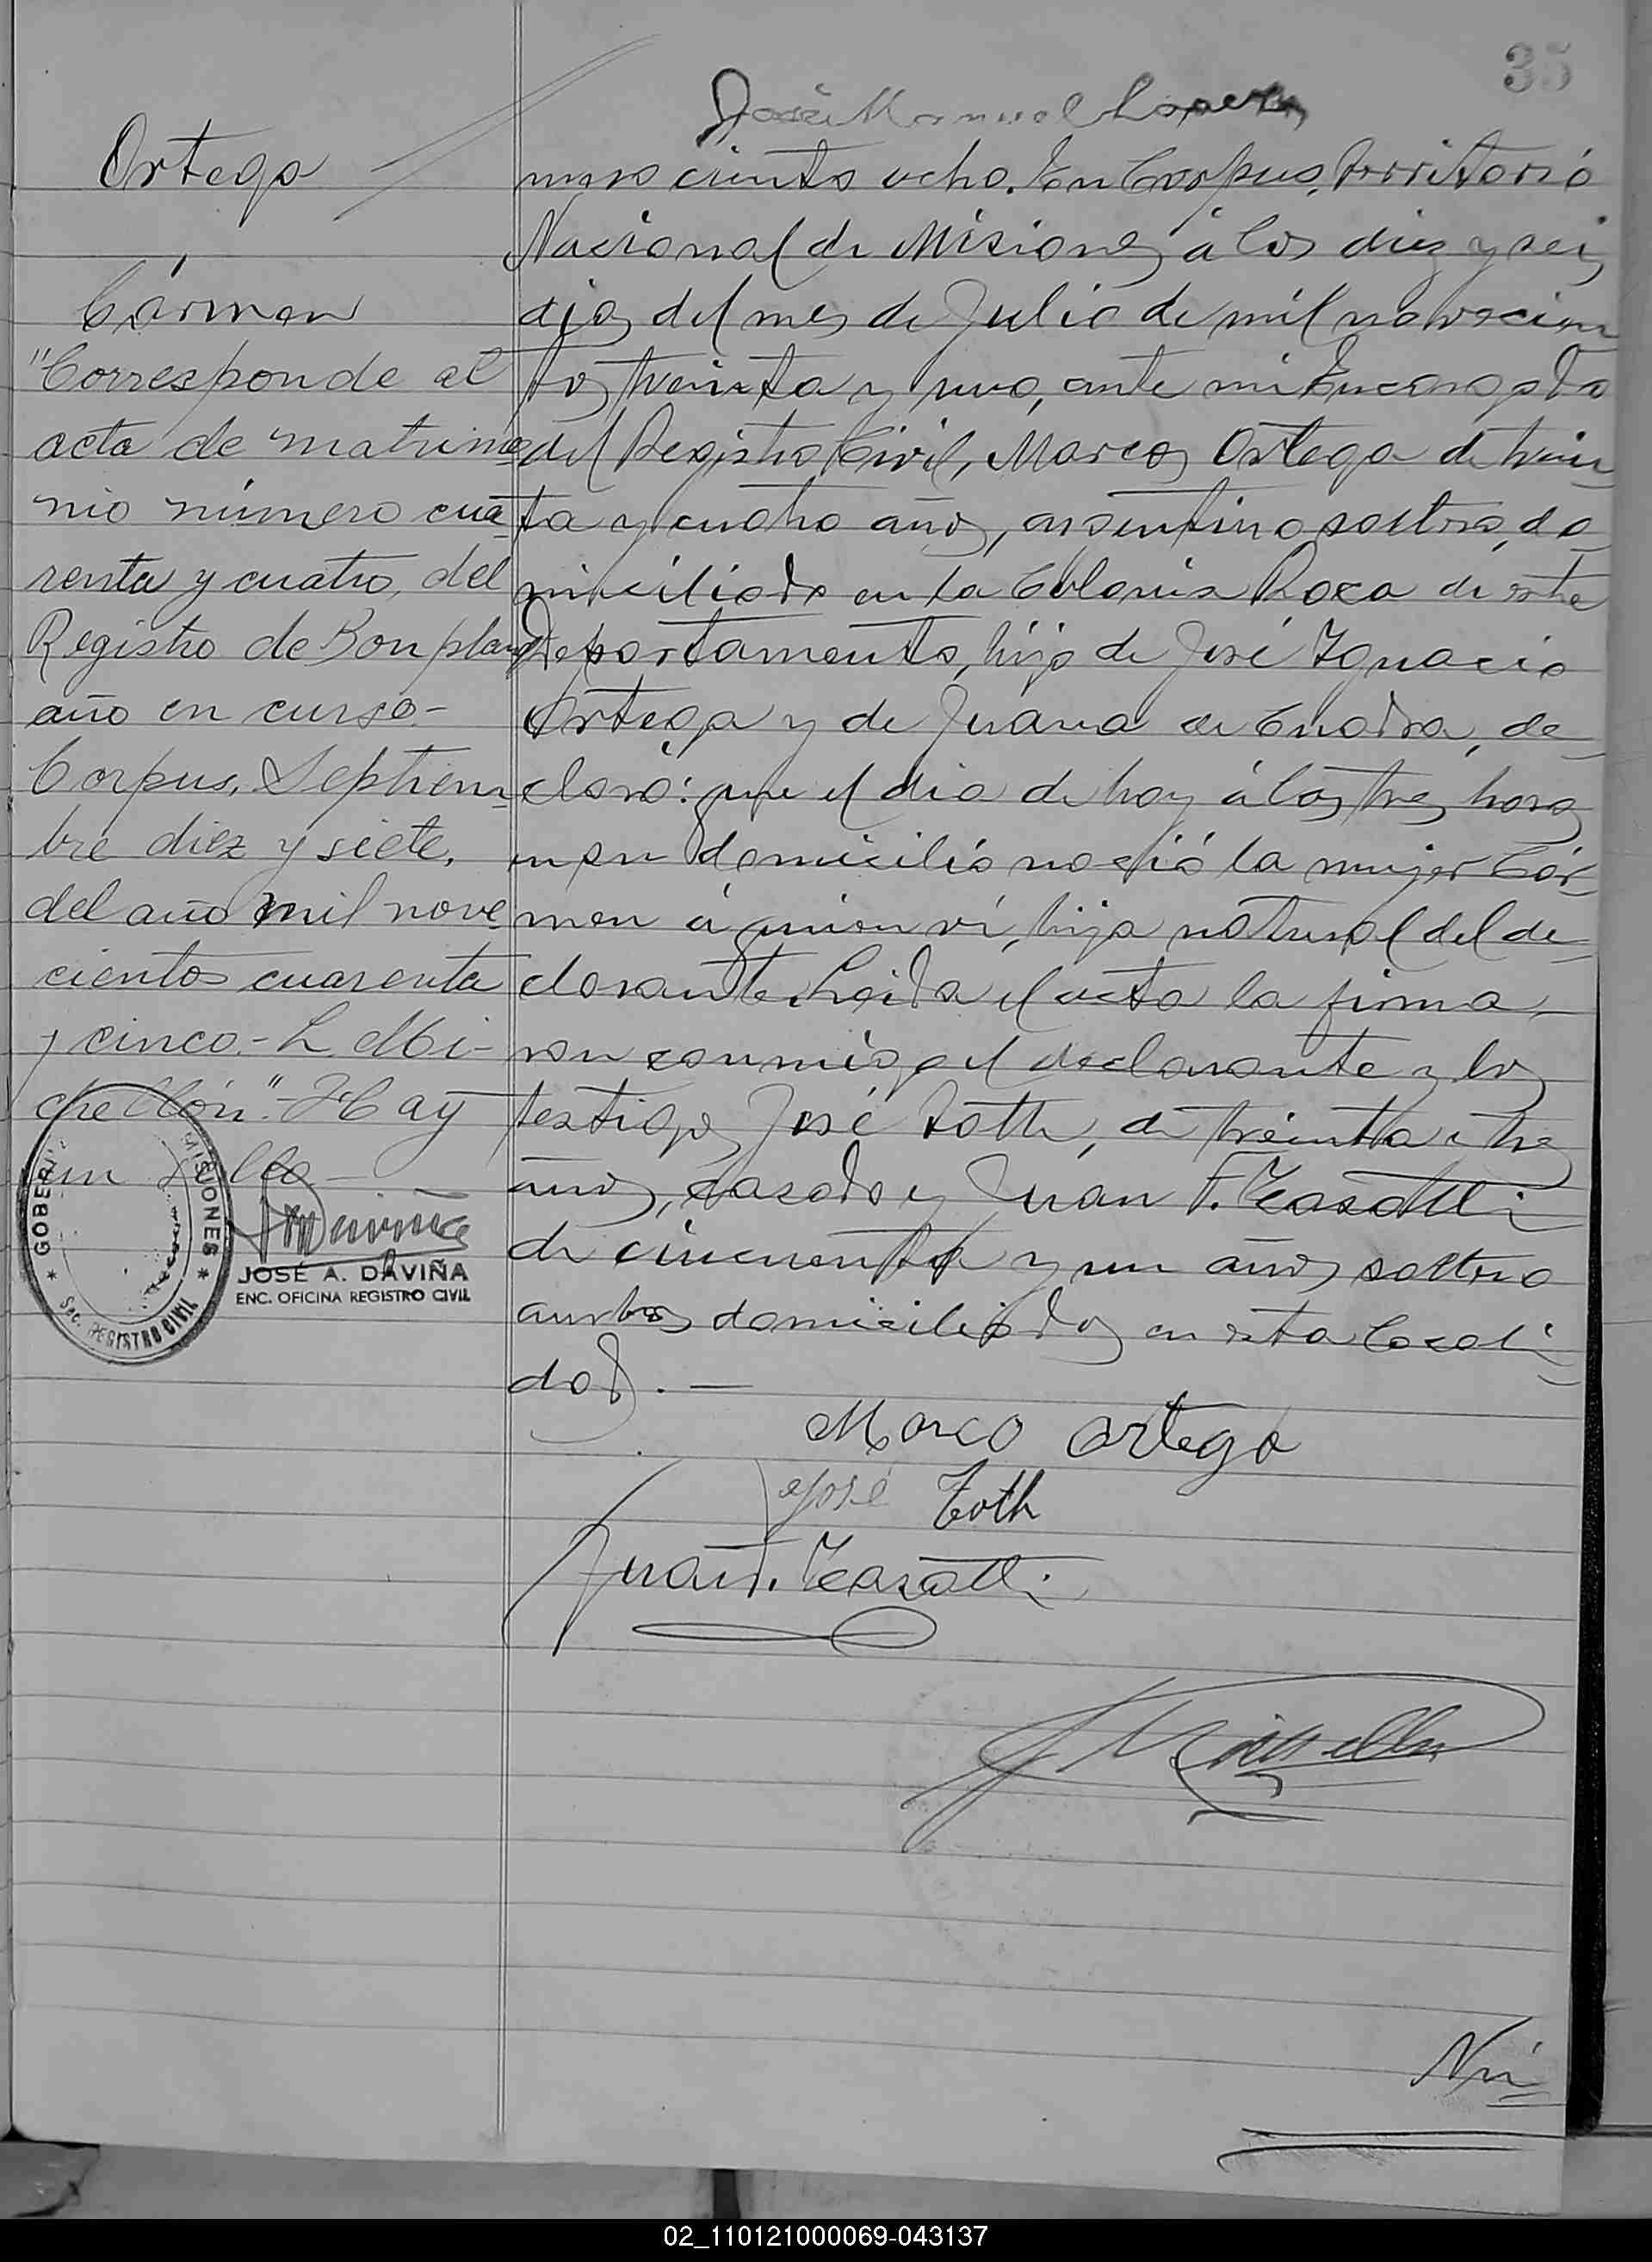 35
José Manuel Lopez
Ortega
Cármen
"Corresponde al
acta de matrimo
nio número cua
renta y cuatro, del
Registro de Bonpland
año en curso-
Corpus, Septiem
bre diez y siete,
del año mil nove
cientos cuarenta
y cinco.- L. Mi-
chellón".- Hay
un sello.-
GOBER MISIONES
Sec. REGISTRO CIVIL
JOSÉ A. DAVIÑA
ENC. OFICINA REGISTRO CIVIL
mero ciento ocho. En Corpus, Territorio
Nacional de Misiones á los diez y seis
dias del mes de Julio de mil novecien
tos treinta y uno, ante mi Encargado
del Registro Civil, Marcos Ortega de trein
ta y cuatro años, argentino, soltero, do
miciliado en la Colonia Roca de este
Departamento, hijo de José Ignacio
Ortega y de Juana de Cuadra, de
claró: que el dia de hoy á las tres horas
en su domicilio nació la mujer Cár
men á quien ví, hija natural del de
clarante. Leida el acta la firma
ron conmigo el declarante y los
testigos José Toth, de treinta y tres
años, casado y Juan F. Casatti
de cincuenta y un años soltero
ambos domiciliados en esta locali
dad.-
Marco Ortega
José Toth
Juan F. Casatti
Nú
02_110121000069-043137